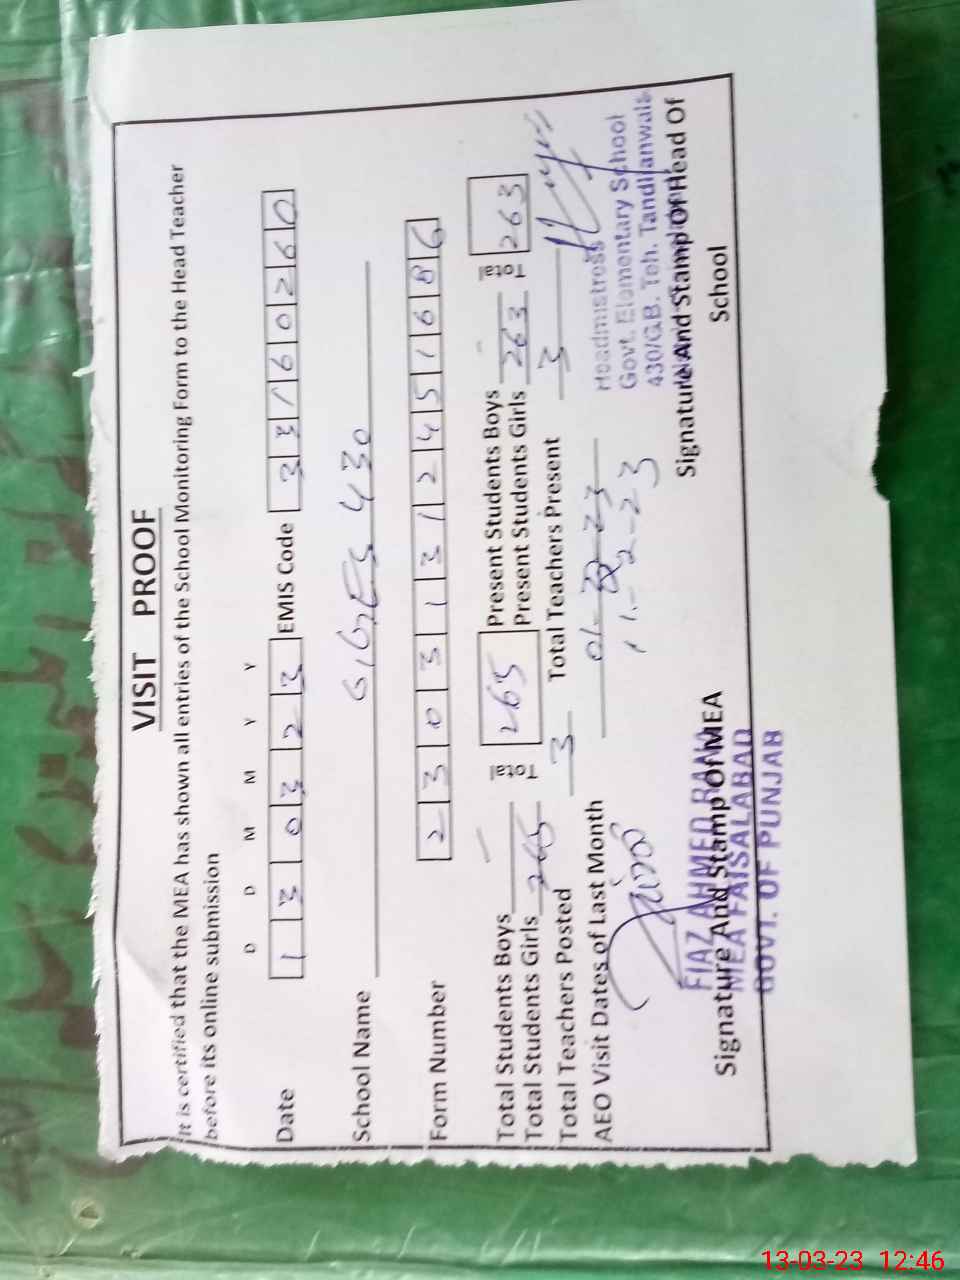 VISIT PROOF
It is certified that the MEA has shown all entries of the School Monitoring Form to the Head Teacher
before its online submission
D D M M Y Y
Date 1 3 0 3 2 3 EMIS Code 3 3 1 6 0 2 6 0
School Name G.G.E.S 430
Form Number 2 3 0 3 1 3 1 2 4 5 1 6 8 6
Total Students Boys – Total 265 Present Students Boys – Total 263
Total Students Girls 265 Present Students Girls 263
Total Teachers Posted 3 Total Teachers Present 3
AEO Visit Dates of Last Month 01-
11-2-23
Headmistress
Govt. Elementary School
430/G.B. Teh. Tandlianwala
FIAZ AHMED RANA
MEA FAISALABAD
GOVT. OF PUNJAB
Signature And Stamp Of MEA
Signature And Stamp Of Head Of
School
13-03-23 12:46